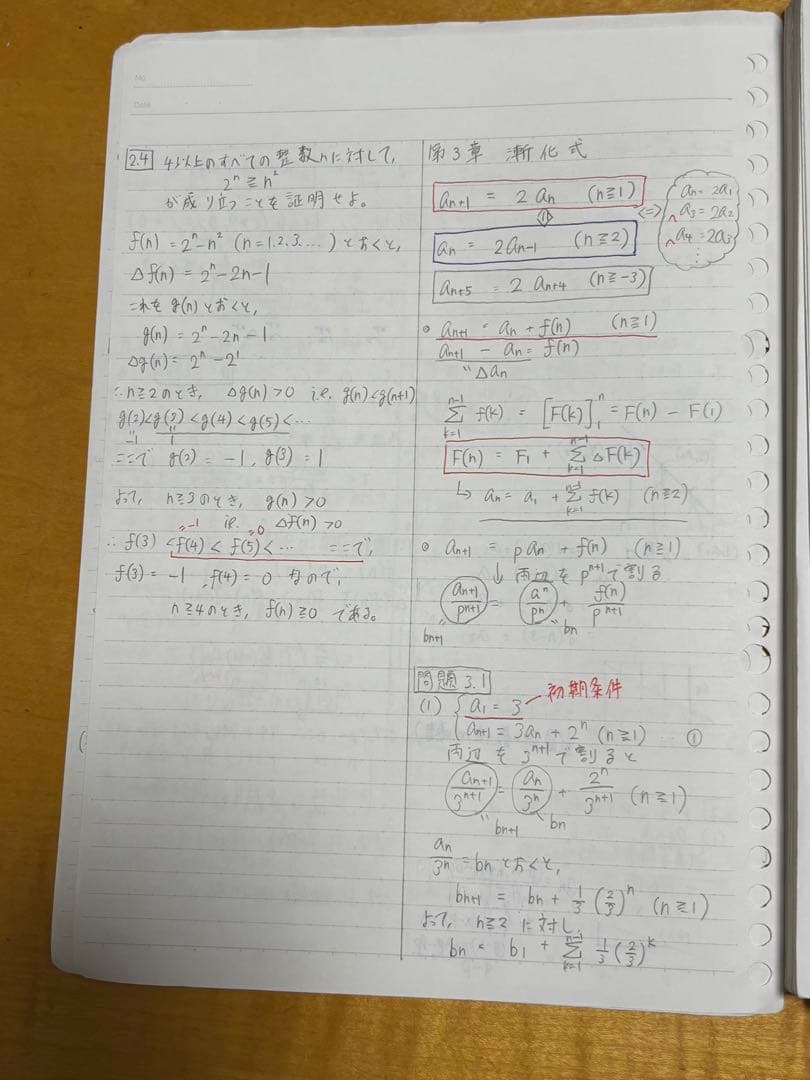 No.
Date
2.4 4以上のすべての整数nに対して,
2^n ≧ n^2
が成り立つことを証明せよ。
f(n) = 2^n - n^2 (n=1.2.3.…) とおくと,
Δf(n) = 2^n - 2n - 1
これを g(n) とおくと,
g(n) = 2^n - 2n - 1
Δg(n) = 2^n - 2^1
∴ n≧2のとき, Δg(n) > 0 i.e. g(n) < g(n+1)
g(2) < g(3) < g(4) < g(5) < …
-1 1
ここで g(2) = -1, g(3) = 1
よって, n≧3のとき, g(n) > 0
i.e. Δf(n) > 0
=-1 =0
∴ f(3) < f(4) < f(5) < … ここで,
f(3) = -1, f(4) = 0 なので,
n≧4のとき, f(n) ≧ 0 である。
第3章 漸化式
a_{n+1} = 2 a_n (n≧1)
⇔
a_n = 2a_{n-1} (n≧2)
a_{n+5} = 2 a_{n+4} (n≧-3)
<=>
a_n = 2a_1
∧ a_3 = 2a_2
∧ a_4 = 2a_3
⋮
◦ a_{n+1} = a_n + f(n) (n≧1)
a_{n+1} - a_n = f(n)
"Δa_n
Σ_{k=1}^{n-1} f(k) = [F(k)]_1^n = F(n) - F(1)
F(n) = F_1 + Σ_{k=1}^{n-1} ΔF(k)
↳ a_n = a_1 + Σ_{k=1}^{n-1} f(k) (n≧2)
◦ a_{n+1} = p a_n + f(n) (n≧1)
↓ 両辺を p^{n+1} で割る
a_{n+1}/p^{n+1} = a^n/p^n + f(n)/p^{n+1}
b_{n+1} b_n
問題 3.1
初期条件
(1) { a_1 = 3
a_{n+1} = 3a_n + 2^n (n≧1) … ①
両辺を 3^{n+1} で割ると
a_{n+1}/3^{n+1} = a_n/3^n + 2^n/3^{n+1} (n≧1)
b_{n+1} b_n
a_n/3^n = b_n とおくと,
b_{n+1} = b_n + 1/3 (2/3)^n (n≧1)
よって, n≧2 に対し,
b_n = b_1 + Σ_{k=1}^{n-1} 1/3 (2/3)^k